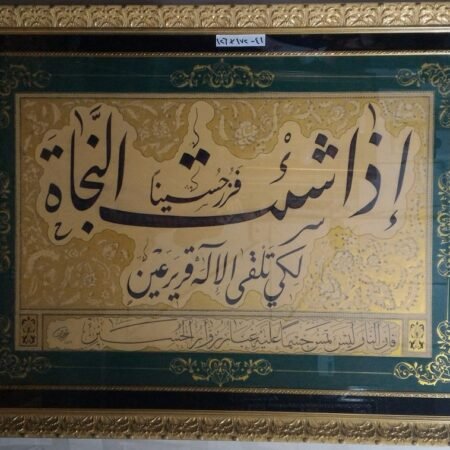 إذا شئت النجاة فزر حسينا
لكي تلقى الاله قرير عين
فإن النار ليس تمس جسما عليه غبار زوار الحسين